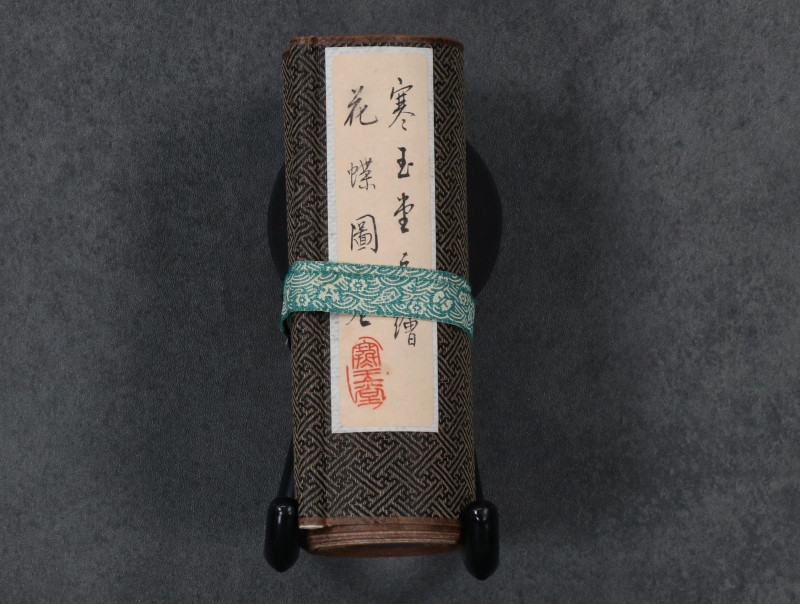 寒玉堂繪
花蝶圖
寒玉堂